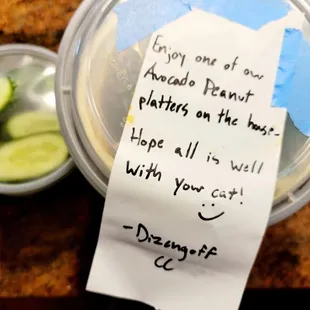 Enjoy one of our
Avocado Peanut
platters on the house-
Hope all is well
with your cat!
-Dizengoff
CC